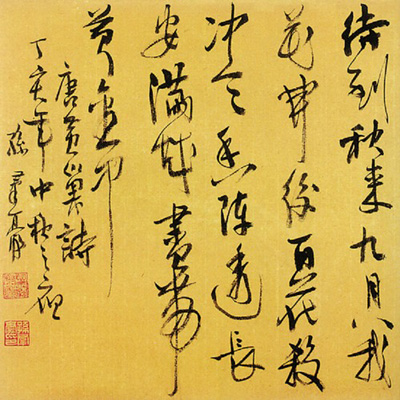 待到秋来九月八我
花開後百花殺
冲天香陣透長
安滿城盡帶
黄金甲
唐黄巢詩
丁亥年中秋之
孫